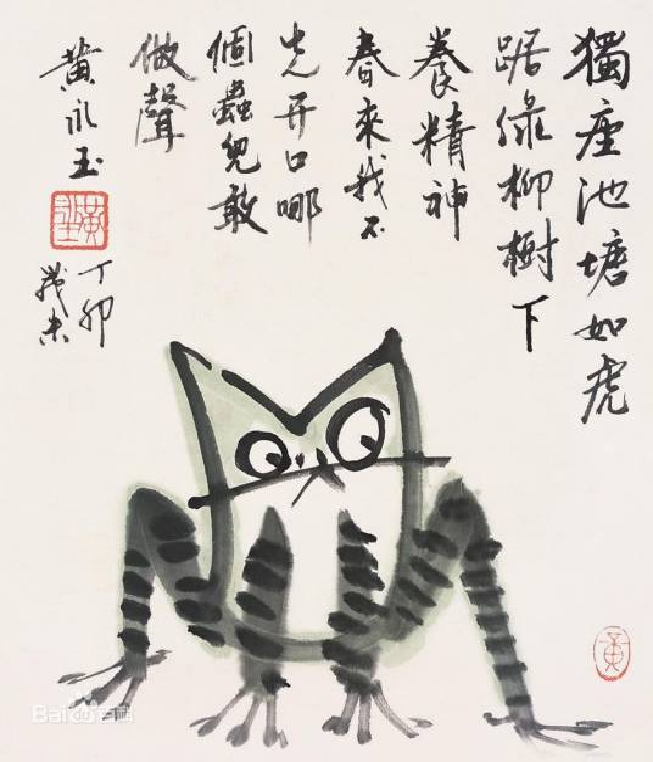 獨座池塘如虎
踞綠柳樹下
養精神
春來我不
先开口哪
個蟲兒敢
做聲
黄永玉
丁卯
歲末
黄
Bai百科